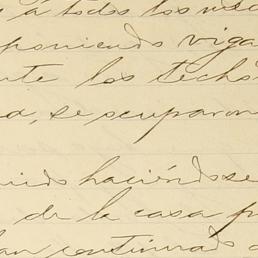 á todos los
poniendo viga
te los techo
a, se ocuparon
uido haciéndose
de la casa p
an continuado